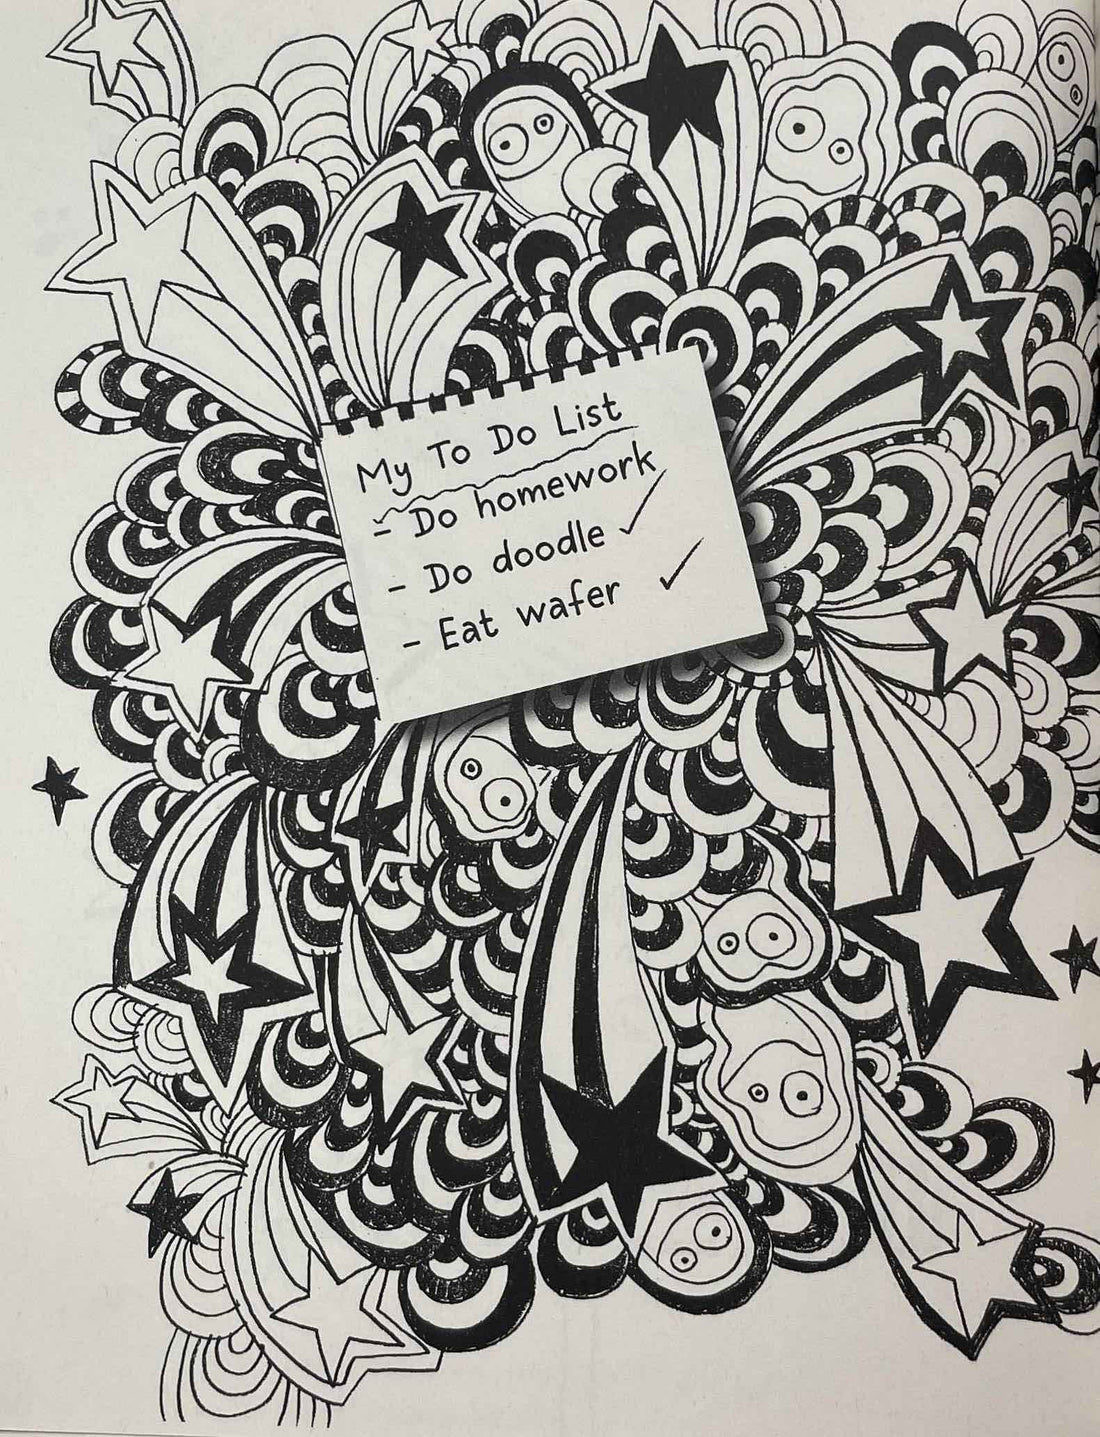 My To Do List
- Do homework
- Do doodle ✓
- Eat wafer ✓